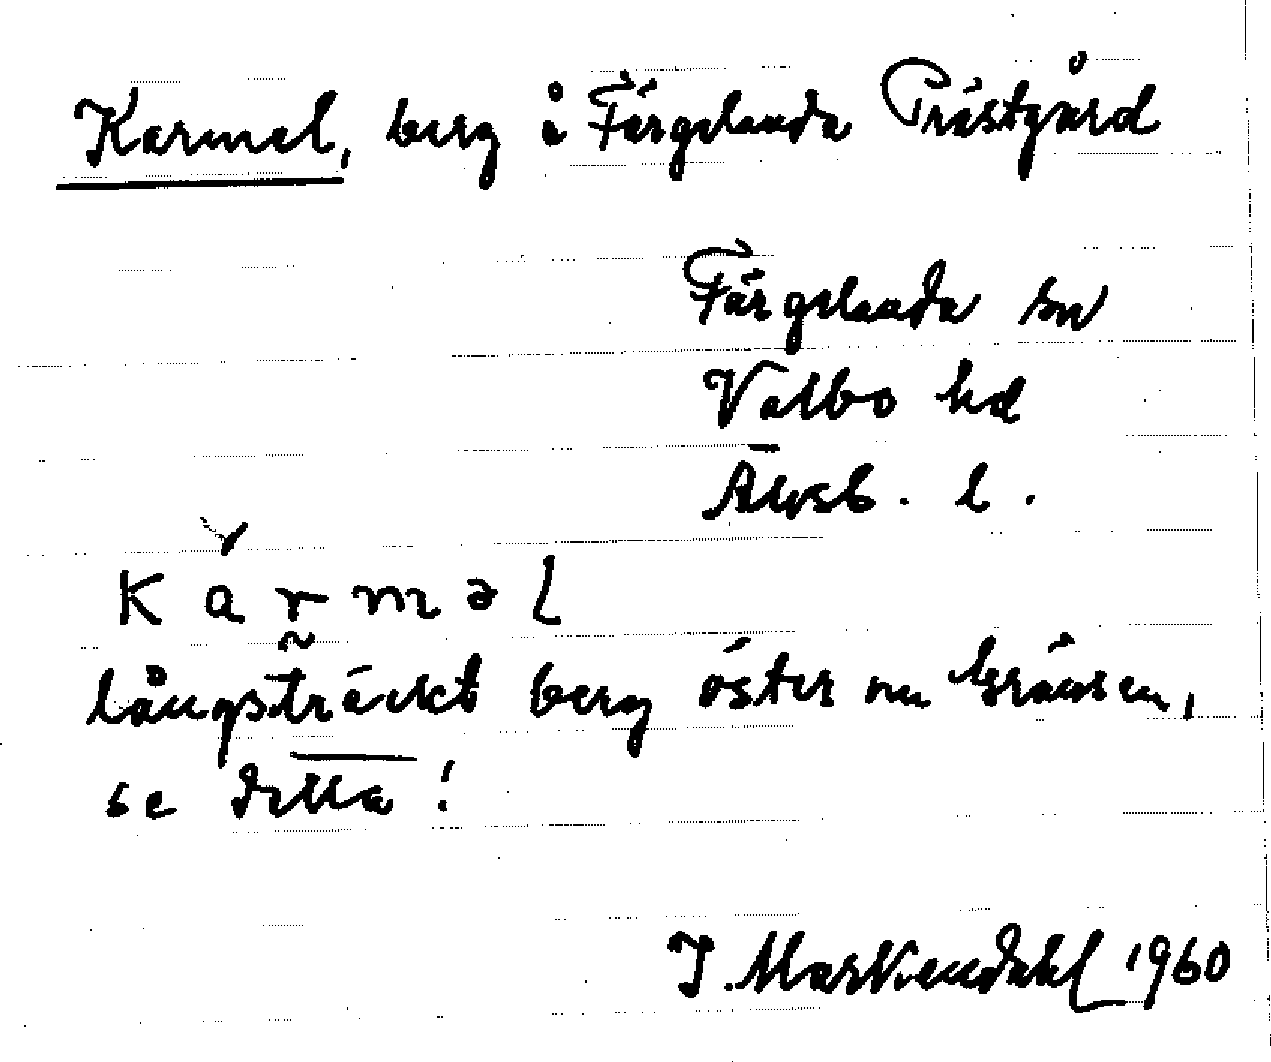 Karmel, berg å Färgelanda Prästgård
Färgelanda sn
Valbo hd
Älvsb. l.
Kärməl
långsträckt berg öster om Gränsen,
se detta!
J. Markendahl 1960